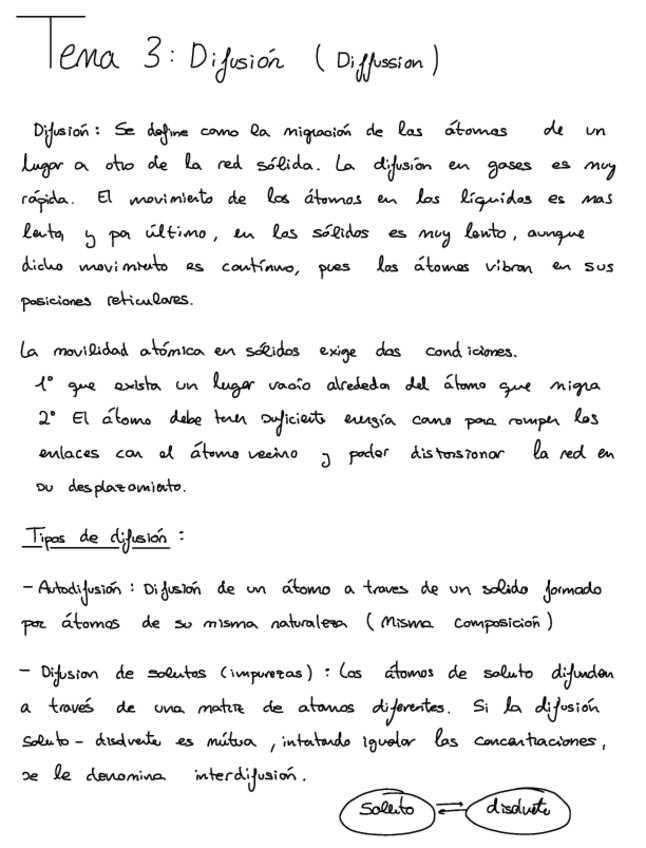 Tema 3: Difusión (Diffussion)
Difusión: Se define como la migración de los átomos de un
lugar a otro de la red sólida. La difusión en gases es muy
rápida. El movimiento de los átomos en los líquidos es mas
lenta y por último, en los sólidos es muy lento, aunque
dicho movimiento es contínuo, pues los átomos vibran en sus
posiciones reticulares.
La movilidad atómica en sólidos exige dos condiciones.
1° que exista un lugar vacío alrededor del átomo que migra
2° El átomo debe tener suficiente energía como para romper los
enlaces con el átomo vecino y poder distorsionar la red en
su desplazamiento.
Tipos de difusión:
- Autodifusión: Difusión de un átomo a traves de un solido formado
por átomos de su misma naturaleza (Misma composición)
- Difusion de solutos (impurezas): Los átomos de soluto difunden
a través de una matriz de atomos diferentes. Si la difusión
soluto-disolvente es mútua, intentando igualar las concentraciones,
se le denomina interdifusión.
soluto ⇄ disolvente